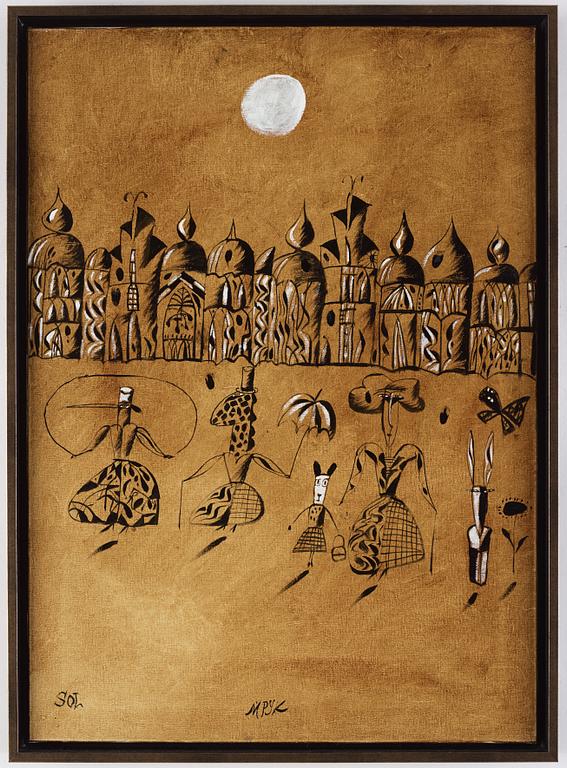 SOL
МРУК